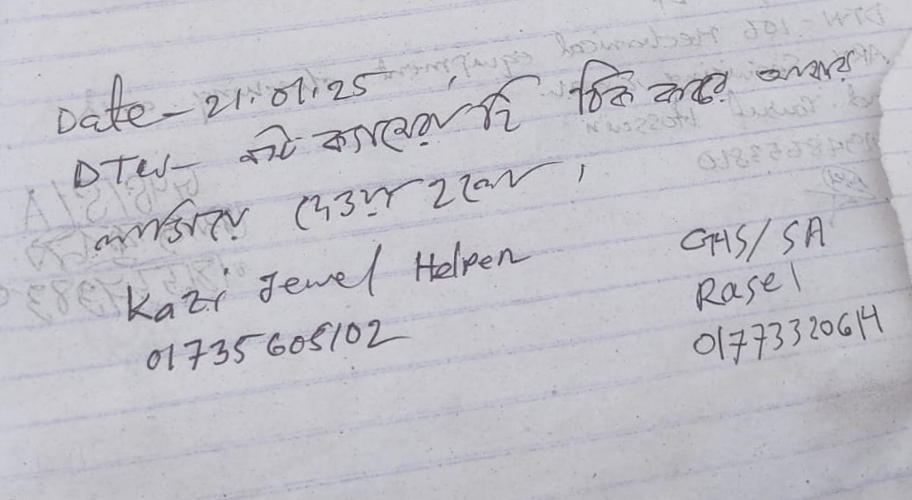 Date - 21.01.25
DTW- ঠিক করে আবার
লাগিয়ে দেওয়া হলো।
Kazi Jewel Helper
01735605102
GHS/SA
Rasel
01773320614